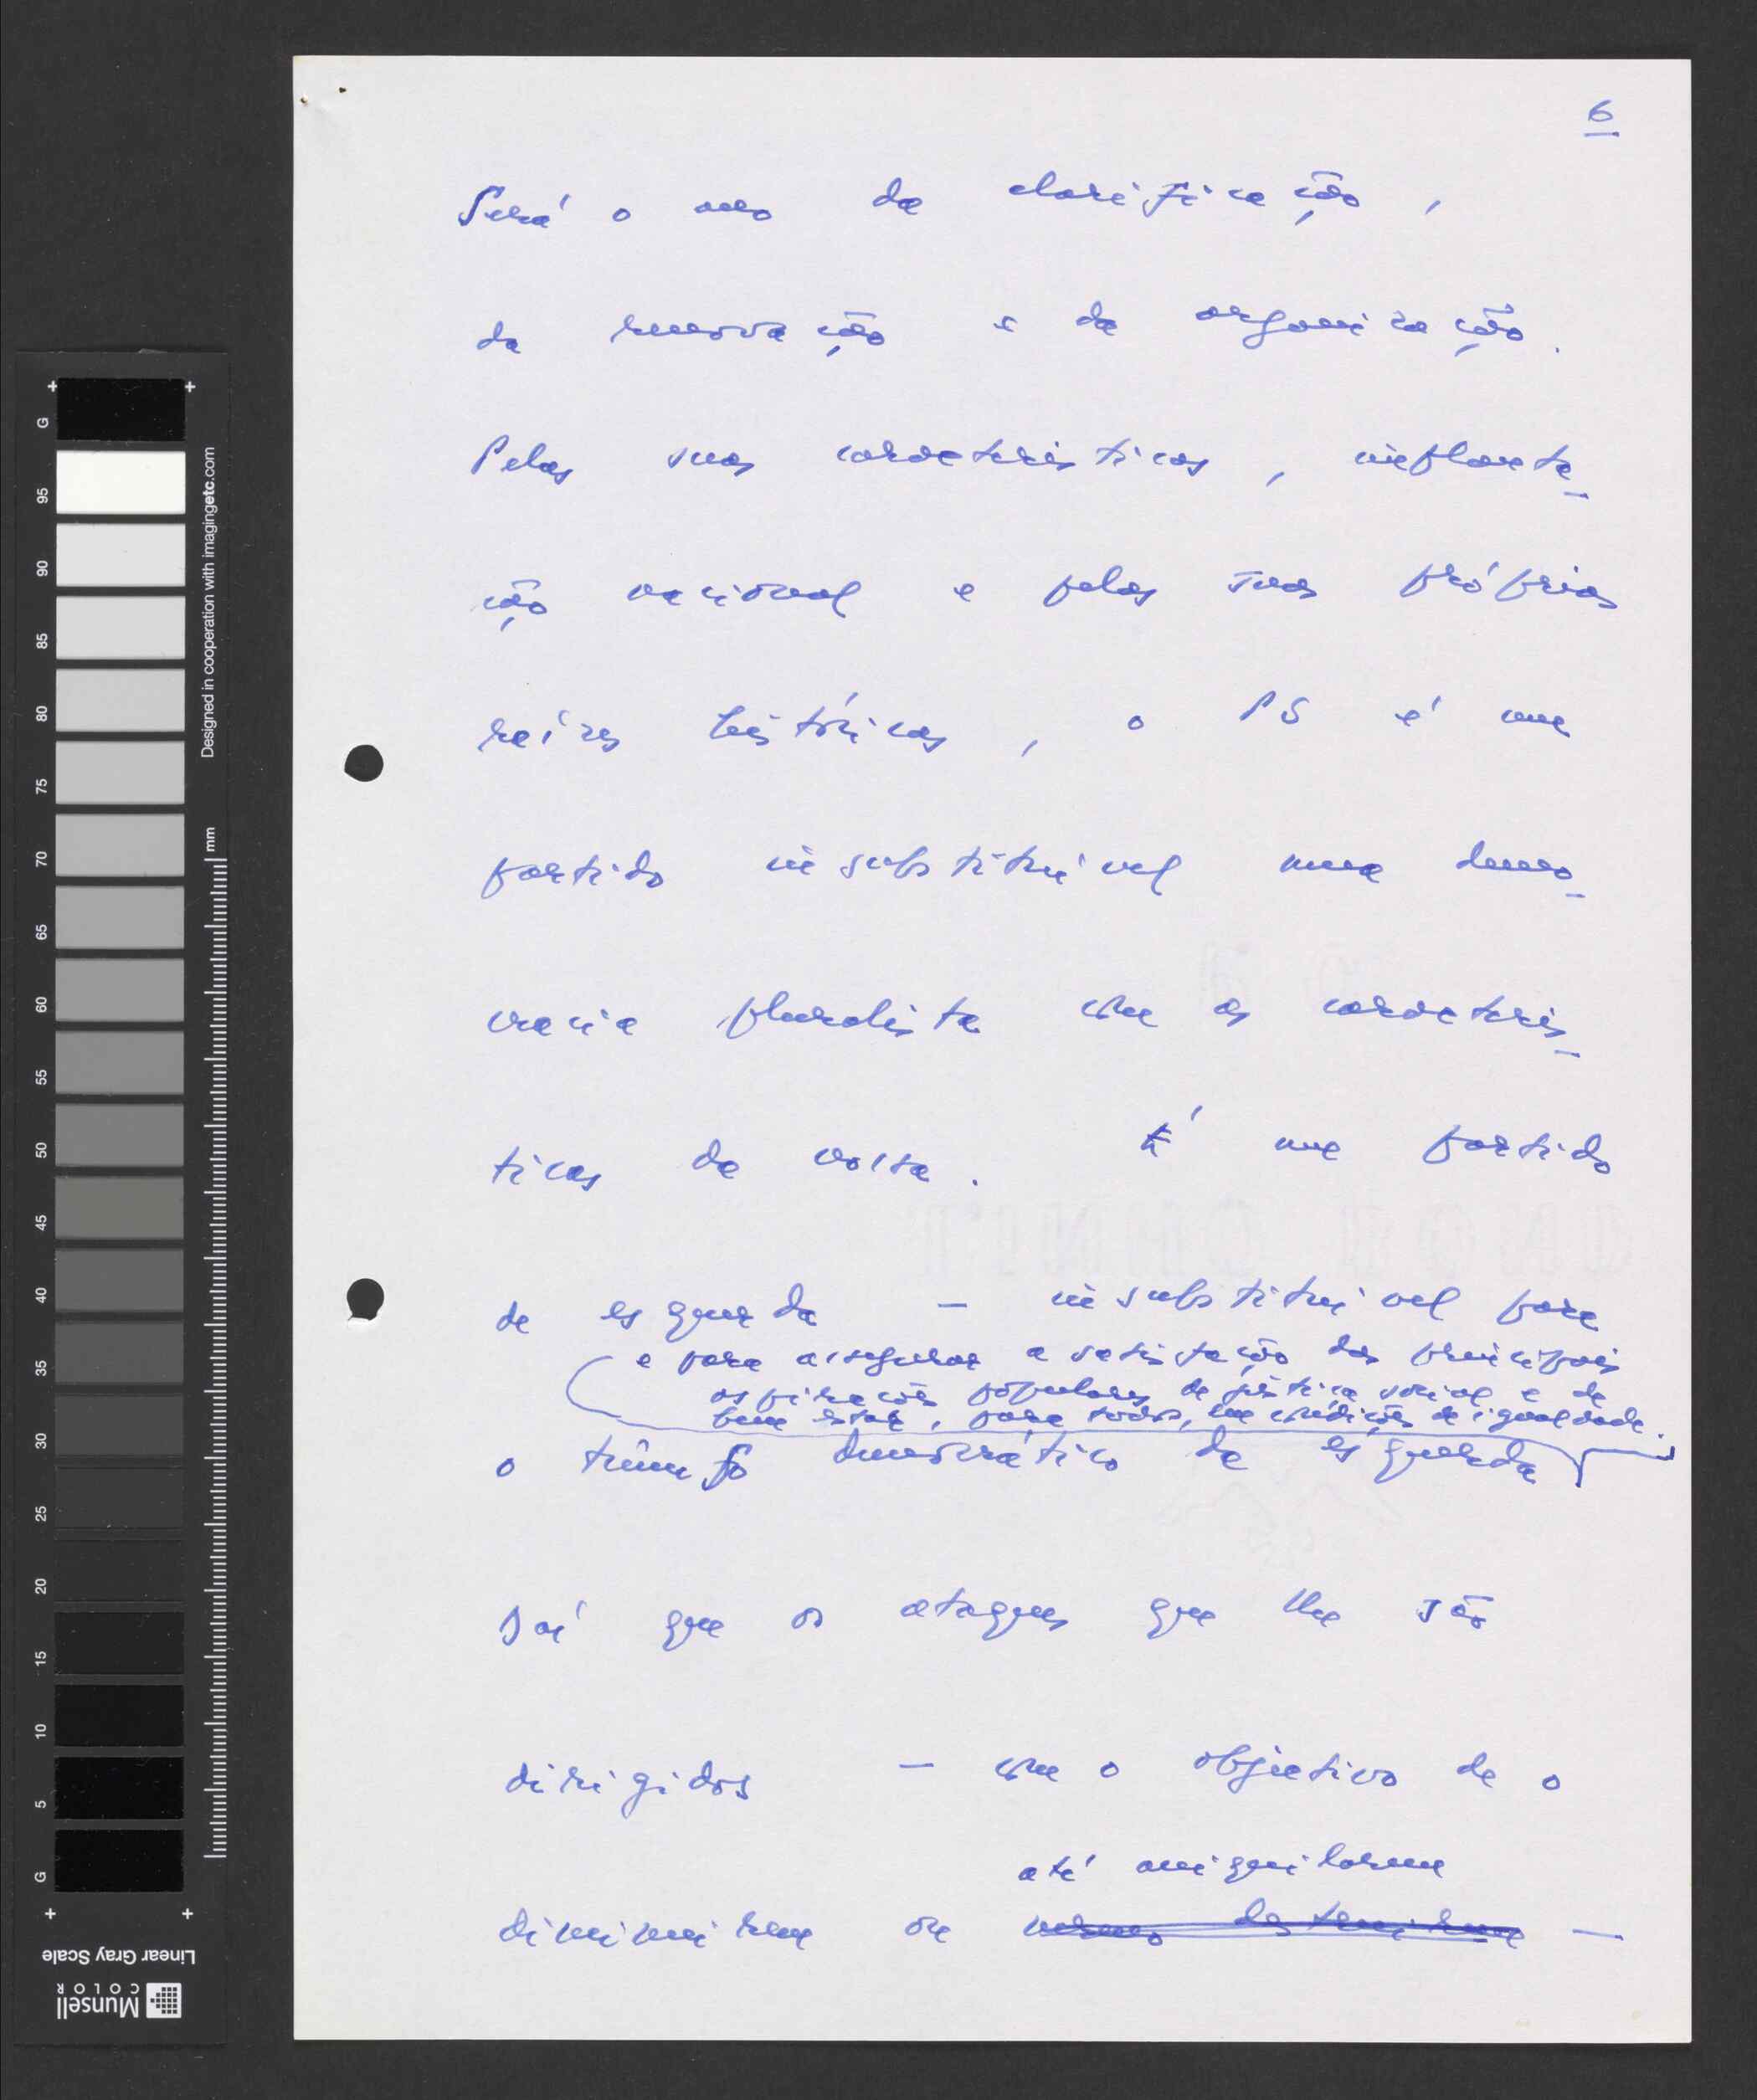 6
Será o ano da clarificação,
da renovação e da organização.
Pelas suas características, implanta-
ção nacional e pelas suas próprias
raízes históricas, o PS é um
partido insubstituível numa demo-
cracia pluralista com as caracterís-
ticas da nossa. É um partido
de esquerda — insubstituível para
e para assegurar a satisfação das principais
aspirações populares de justiça social e de
bem estar, para todos, em condições de igualdade.
o triunfo democrático da esquerda
Daí que os ataques que lhe são
dirigidos — com o objectivo de o
até aniquilarem
diminuirem ou mesmo destruirem —
G
95
90
85
80
75
70
65
60
55
50
45
40
35
30
25
20
15
10
5
G
Designed in cooperation with imagingetc.com
mm
Linear Gray Scale
Munsell
COLOR